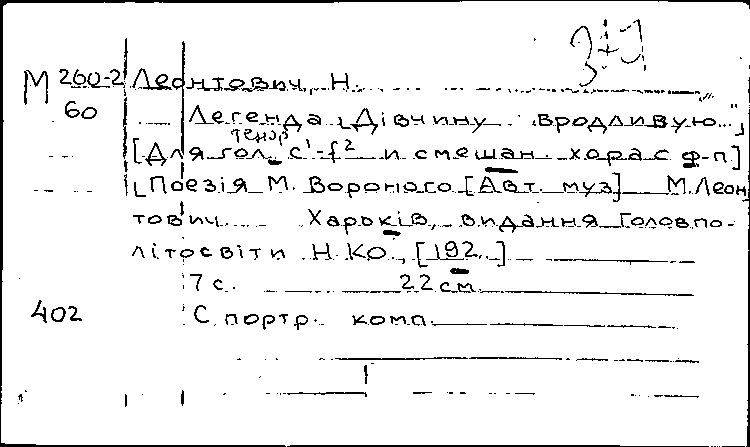 М 260-2 Леонтович, Н.
60 Легенда „Дівчину вродливую..."
тенор
[Для гол. c¹-f² и смешан. хора с ф-п]
Поезія М. Вороного [Авт. муз] М. Леон
тович. Харьків, видання Головпо-
літосвіти НКО, [192.]
7 с. 22 см.
402 С портр. комп.